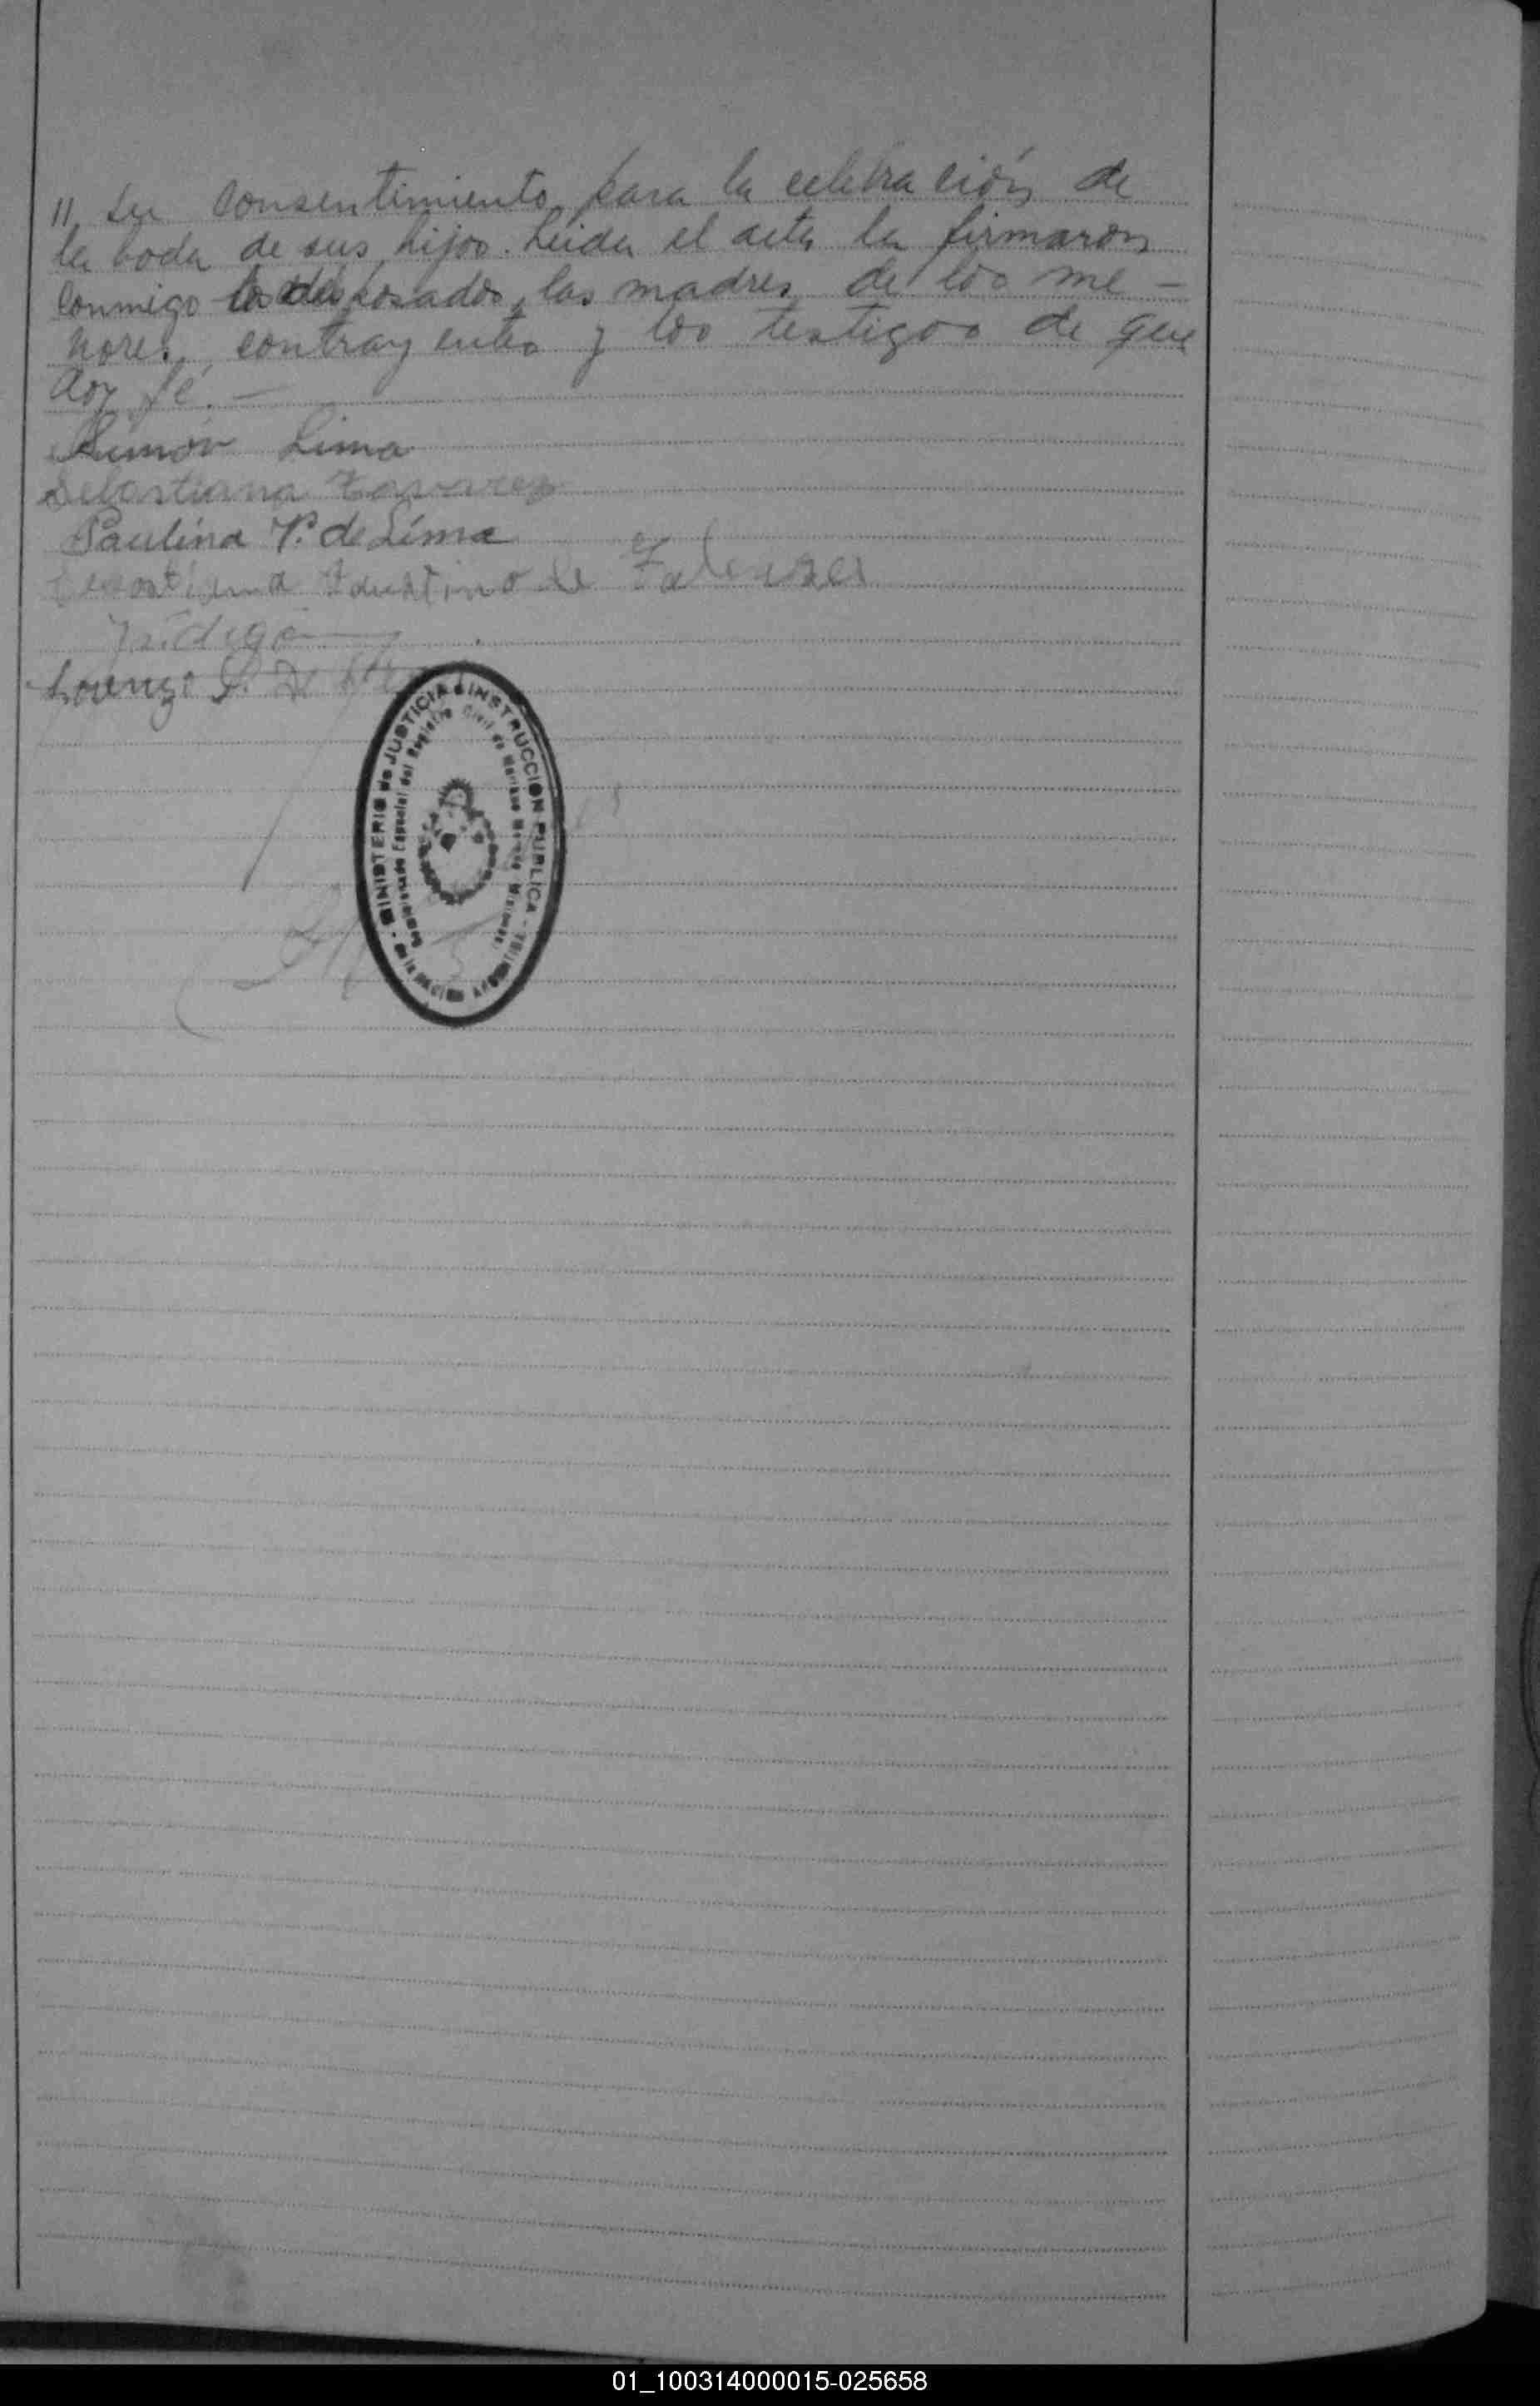 " su consentimiento para la celebración de
la boda de sus hijos. Leida el acta la firmaron
conmigo los desposados, las madres de los me-
nores, contrayentes y los testigos de que
doy fé. —
Simón Lima
Sebastiana
Paulina P. de Lima
Faustino de
Lorenzo S.
MINISTERIO de JUSTICIA é INSTRUCCION PUBLICA - de la NACION ARGENTINA -
Especial del Registro Civil de
01_100314000015-025658